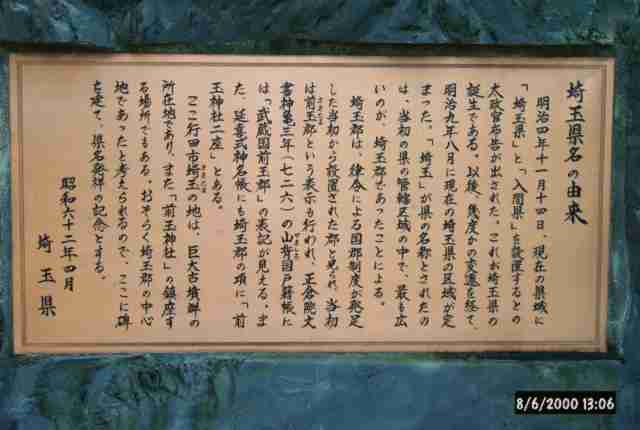 埼玉県名の由来
明治四年十一月十四日、現在の県域に
「埼玉県」と「入間県」を設置するとの
太政官布告が出された。これが埼玉県の
誕生である。以後、幾度かの変遷を経て、
明治九年八月に現在の埼玉県の区域が定
まった。「埼玉」が県の名称とされたの
は、当初の県の管轄区域の中で、最も広
いのが、埼玉郡であったことによる。
埼玉郡は、律令による国郡制度が発足
した当初から設置された郡と見られ、当初
は前玉郡という表示も行われ、正倉院文
書神亀三年(七二六)の山背国戸籍帳に
は「武蔵国前玉郡」の表記が見える。ま
た、延喜式神名帳にも埼玉郡の項に「前
玉神社二座」とある。
ここ行田市埼玉の地は、巨大古墳群の
所在地であり、また「前玉神社」の鎮座す
る場所でもある。おそらく埼玉郡の中心
地であったと考えられるので、ここに碑
を建て、県名発祥の記念とする。
昭和六十二年四月
埼玉県
8/6/2000 13:06